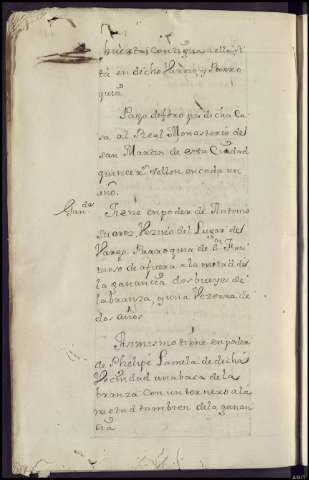 huerta contigua a ella si
ta en dicho Varrio, y Parro
quia
Paga de foro por dicha Ca
sa al Real Monasterio de
san Martin de esta Ciudad
quince rs vellon encada un
año.
Ganado Tiene enpoder de Antonio
Suarez, Vezino del Lugar de
Parroquia de Sn Fruc
tuoso de afuera, ala mitad de
la ganancia dos bueyes de
labranza, y una Vezerra de
dos años
Asimismo tiene en poder
de Phelipe Lamela de dicha
Vecindad una baca de la
branza con un ternero ala
metad tambien de la ganan
cia